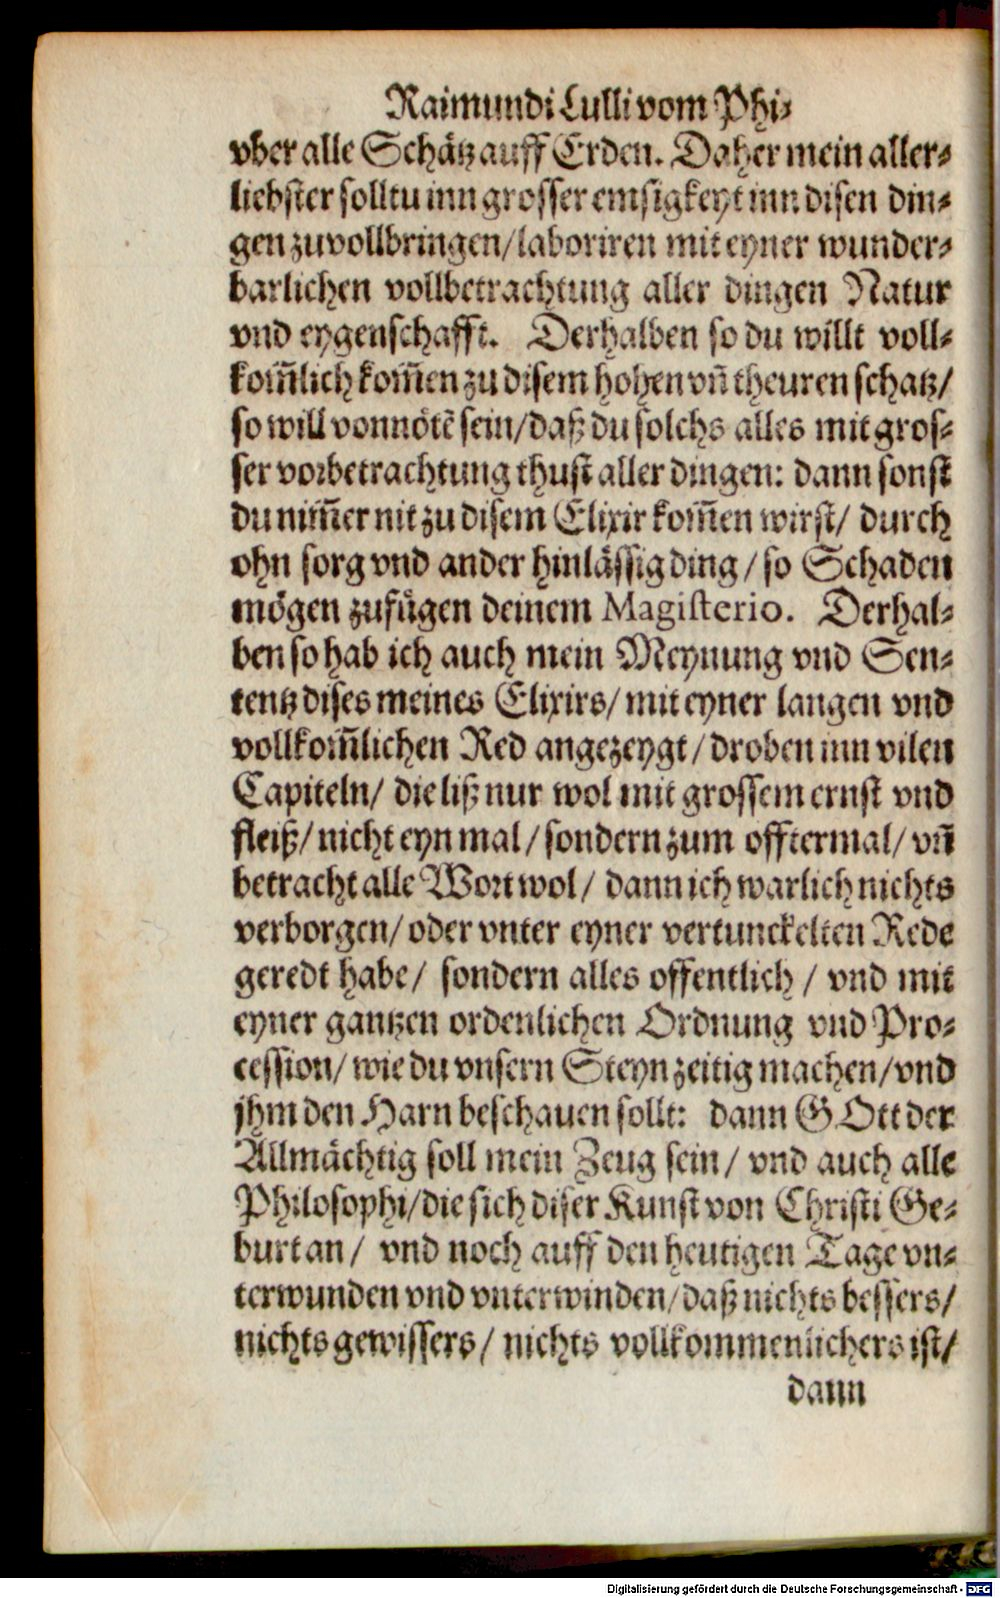 Raimundi Lulli vom Phi-
vber alle Schätz auff Erden. Daher mein aller-
liebster solltu inn grosser emsigkeyt inn disen din-
gen zuvollbringen/ laboriren mit eyner wunder-
barlichen vollbetrachtung aller dingen Natur
vnd eygenschafft. Derhalben so du willt voll-
kom̃lich kom̃en zu disem hohen vñ theuren schatz/
so will vonnötẽ sein/ daß du solchs alles mit gros-
ser vorbetrachtung thust aller dingen: dann sonst
du nim̃er nit zu disem Elixir kom̃en wirst/ durch
ohn sorg vnd ander hinlässig ding/ so Schaden
mögen zufügen deinem Magisterio. Derhal-
ben so hab ich auch mein Meynung vnd Sen-
tentz dises meines Elixirs/ mit eyner langen vnd
vollkom̃lichen Red angezeygt/ droben inn vilen
Capiteln/ die liß nur wol mit grossem ernst vnd
fleiß/ nicht eyn mal/ sondern zum offtermal/ vñ
betracht alle Wort wol/ dann ich warlich nichts
verborgen/ oder vnter eyner vertunckelten Rede
geredt habe/ sondern alles offentlich/ vnd mit
eyner gantzen ordenlichen Ordnung vnd Pro-
cession/ wie du vnsern Steyn zeitig machen/ vnd
jhm den Harn beschauen sollt: dann GOtt der
Allmächtig soll mein Zeug sein/ vnd auch alle
Philosophi/ die sich diser Kunst von Christi Ge-
burt an/ vnd noch auff den heutigen Tage vn-
terwunden vnd vnterwinden/ daß nichts bessers/
nichts gewissers/ nichts vollkommenlichers ist/
dann
Digitalisierung gefördert durch die Deutsche Forschungsgemeinschaft - DFG